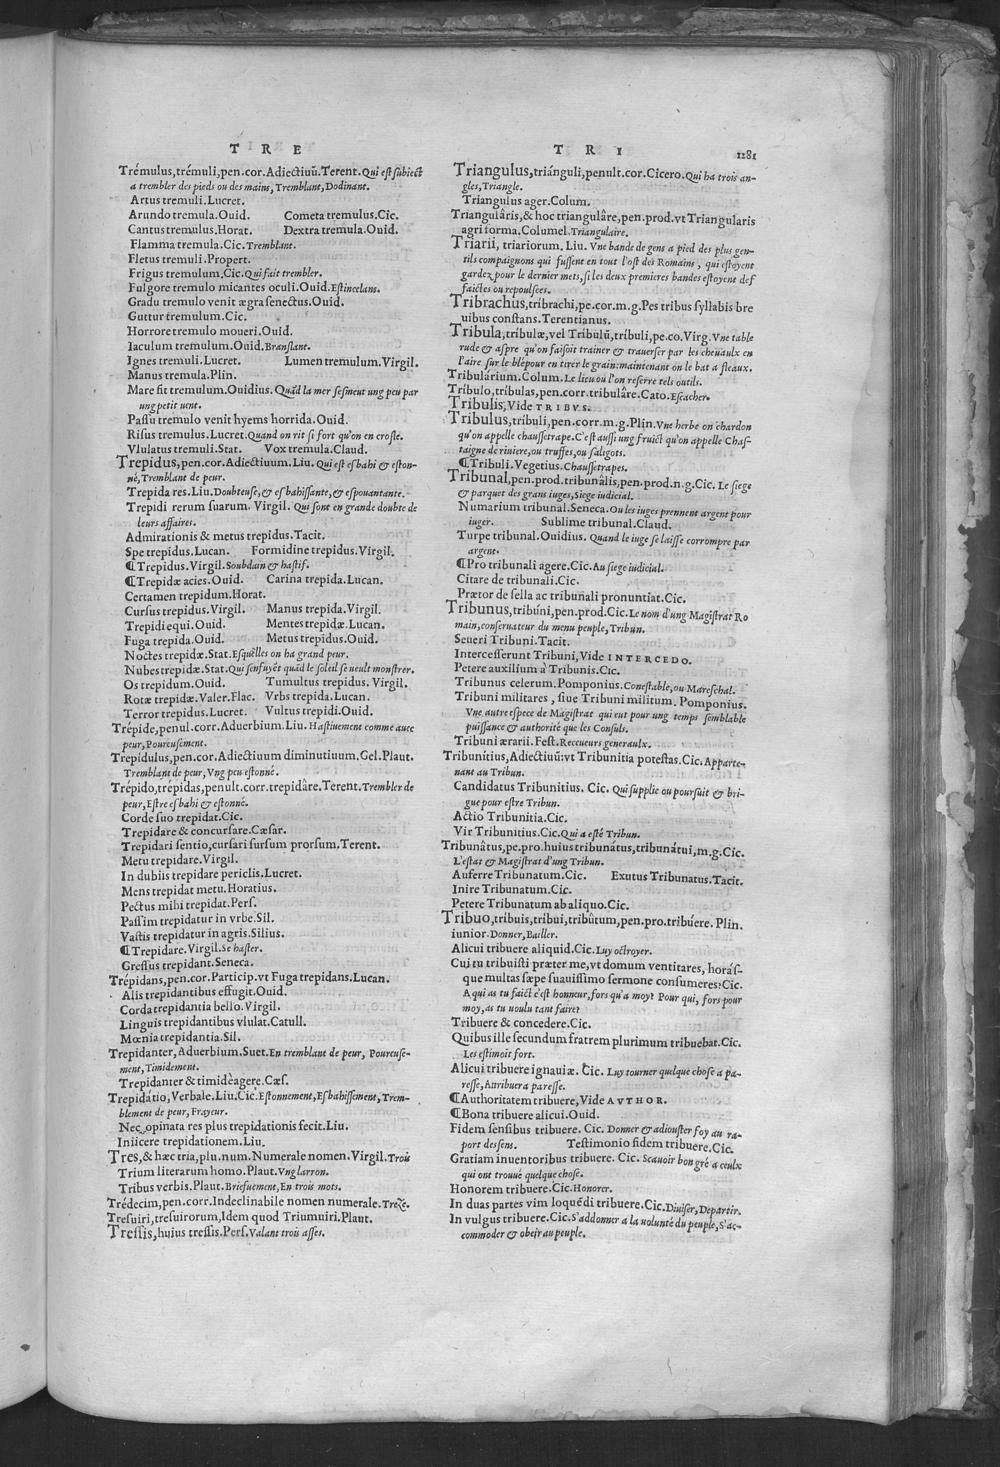 T R E
Trémulus, trémuli, pen. cor. Adiectiuũ. Terent. Qui est subiect
a trembler des pieds ou des mains, Tremblant, Dodinant.
Artus tremuli. Lucret.
Arundo tremula. Ouid. Cometa tremulus. Cic.
Cantus tremulus. Horat. Dextra tremula. Ouid.
Flamma tremula. Cic. Tremblant.
Fletus tremuli. Propert.
Frigus tremulum. Cic. Qui fait trembler.
Fulgore tremulo micantes oculi. Ouid. Estincelans.
Gradu tremulo venit ægra senectus. Ouid.
Guttur tremulum. Cic.
Horrore tremulo moueri. Ouid.
Iaculum tremulum. Ouid. Branslant.
Ignes tremuli. Lucret. Lumen tremulum. Virgil.
Manus tremula. Plin.
Mare fit tremulum. Ouidius. Quãd la mer s'esmeut ung peu par
ung petit uent.
Passu tremulo venit hyems horrida. Ouid.
Risus tremulus. Lucret. Quand on rit si fort qu'on en crosle.
Vlulatus tremuli. Stat. Vox tremula. Claud.
Trepidus, pen. cor. Adiectiuum. Liu. Qui est esbahi & eston-
né, Tremblant de peur.
Trepida res. Liu. Doubteuse, & esbahissante, & espouantante.
Trepidi rerum suarum. Virgil. Qui sont en grande doubte de
leurs affaires.
Admirationis & metus trepidus. Tacit.
Spe trepidus. Lucan. Formidine trepidus. Virgil.
¶Trepidus. Virgil. Soubdain & hastif.
¶Trepidæ acies. Ouid. Carina trepida. Lucan.
Certamen trepidum. Horat.
Cursus trepidus. Virgil. Manus trepida. Virgil.
Trepidi equi. Ouid. Mentes trepidæ. Lucan.
Fuga trepida. Ouid. Metus trepidus. Ouid.
Noctes trepidæ. Stat. Esquelles on ha grand peur.
Nubes trepidæ. Stat. Qui s'enfuyēt quãd le soleil se ueult monstrer.
Os trepidum. Ouid. Tumultus trepidus. Virgil.
Rotæ trepidæ. Valer. Flac. Vrbs trepida. Lucan.
Terror trepidus. Lucret. Vultus trepidi. Ouid.
Trépide, penul. corr. Aduerbium. Liu. Hastiuement comme auec
peur, Poureusement.
Trepídulus, pen. cor. Adiectiuum diminutiuum. Gel. Plaut.
Tremblant de peur, Vng peu estonné.
Trépido, trépidas, penult. corr. trepidâre. Terent. Trembler de
peur, Estre esbahi & estonné.
Corde suo trepidat. Cic.
Trepidare & concursare. Cæsar.
Trepidari sentio, cursari sursum prorsum. Terent.
Metu trepidare. Virgil.
In dubiis trepidare periclis. Lucret.
Mens trepidat metu. Horatius.
Pectus mihi trepidat. Pers.
Passim trepidatur in vrbe. Sil.
Vastis trepidatur in agris. Silius.
¶Trepidare. Virgil. Se haster.
Gressus trepidant. Seneca.
Trépidans, pen. cor. Particip. vt Fuga trepidans. Lucan.
Alis trepidantibus effugit. Ouid.
Corda trepidantia bello. Virgil.
Linguis trepidantibus vlulat. Catull.
Mœnia trepidantia. Sil.
Trepidanter, Aduerbium. Suet. En tremblant de peur, Poureuse-
ment, Timidement.
Trepidanter & timidè agere. Cæs.
Trepidátio, Verbale. Liu. Cic. Estonnement, Esbahissement, Trem-
blement de peur, Frayeur.
Nec opinata res plus trepidationis fecit. Liu.
Iniicere trepidationem. Liu.
Tres, & hæc tria, plu. num. Numerale nomen. Virgil. Trois
Trium literarum homo. Plaut. Vng larron.
Tribus verbis. Plaut. Briefuement, En trois mots.
Trédecim, pen. corr. Indeclinabile nomen numerale. Treze.
Tresuiri, tresuirorum, Idem quod Triumuiri. Plaut.
Tressis, huius tressis. Pers. Valant trois asses.
T R I 1281
Triangulus, triánguli, penult. cor. Cicero. Qui ha trois an-
gles, Triangle.
Triangulus ager. Colum.
Triangulâris, & hoc triangulâre, pen. prod. vt Triangularis
agri forma. Columel. Triangulaire.
Triarii, triariorum. Liu. Vne bande de gens a pied des plus gen-
tils compaignons qui fussent en tout l'ost des Romains, qui estoyent
gardez pour le dernier mets, si les deux premieres bandes estoyent def
faictes ou repoulsees.
Tribrachus, tríbrachi, pe. cor. m. g. Pes tribus syllabis bre
uibus constans. Terentianus.
Tríbula, tríbulæ, vel Tríbulũ, tríbuli, pe. co. Virg. Vne table
rude & aspre qu'on faisoit trainer & trauerser par les cheuaulx en
l'aire sur le blé pour en tirer le grain: maintenant on le bat a fleaux.
Tribulárium. Colum. Le lieu ou l'on reserre tels outils.
Tríbulo, tríbulas, pen. corr. tribulâre. Cato. Escacher.
Tribulis, Vide TRIBVS.
Tribulus, tríbuli, pen. corr. m. g. Plin. Vne herbe ou chardon
qu'on appelle chaussetrape. C'est aussi ung fruict qu'on appelle Chas-
taigne de riuiere, ou truffes, ou saligots.
¶Tribuli. Vegetius. Chaussetrapes.
Tribunal, pen. prod. tribunâlis, pen. prod. n. g. Cic. Le siege
& parquet des grans iuges, Siege iudicial.
Numarium tribunal. Seneca. Ou les iuges prennent argent pour
iuger. Sublime tribunal. Claud.
Turpe tribunal. Ouidius. Quand le iuge se laisse corrompre par
argent.
¶Pro tribunali agere. Cic. Au siege iudicial.
Citare de tribunali. Cic.
Prætor de sella ac tribunali pronuntiat. Cic.
Tribunus, tribúni, pen. prod. Cic. Le nom d'ung Magistrat Ro
main, conseruateur du menu peuple, Tribun.
Seueri Tribuni. Tacit.
Intercesserunt Tribuni, Vide INTERCEDO.
Petere auxilium à Tribunis. Cic.
Tribunus celerum. Pomponius. Conestable, ou Mareschal.
Tribuni militares, siue Tribuni militum. Pomponius.
Vne autre espece de Magistrat qui eut pour ung temps semblable
puissance & authorité que les Consuls.
Tribuni ærarii. Fest. Receueurs generaulx.
Tribunitius, Adiectiuũ: vt Tribunitia potestas. Cic. Apparte-
nant au Tribun.
Candidatus Tribunitius. Cic. Qui supplie ou poursuit & bri-
gue pour estre Tribun.
Actio Tribunitia. Cic.
Vir Tribunitius. Cic. Qui a esté Tribun.
Tribunâtus, pe. pro. huius tribunâtus, tribunátui, m. g. Cic.
L'estat & Magistrat d'ung Tribun.
Auferre Tribunatum. Cic. Exutus Tribunatus. Tacit.
Inire Tribunatum. Cic.
Petere Tribunatum ab aliquo. Cic.
Tribuo, tríbuis, tríbui, tribûtum, pen. pro. tribúere. Plin.
iunior. Donner, Bailler.
Alicui tribuere aliquid. Cic. Luy octroyer.
Cui tu tribuisti præter me, vt domum ventitares, horás-
que multas sæpe suauissimo sermone consumeres? Cic.
A qui as tu faict c'est honneur, fors qu'a moy? Pour qui, fors pour
moy, as tu uoulu tant faire?
Tribuere & concedere. Cic.
Quibus ille secundum fratrem plurimum tribuebat. Cic.
Les estimoit fort.
Alicui tribuere ignauiæ. Cic. Luy tourner quelque chose a pa-
resse, Attribuer a paresse.
¶Authoritatem tribuere, Vide AVTHOR.
¶Bona tribuere alicui. Ouid.
Fidem sensibus tribuere. Cic. Donner & adiouster foy au ra-
port des sens. Testimonio fidem tribuere. Cic.
Gratiam inuentoribus tribuere. Cic. Scauoir bon gré a ceulx
qui ont trouué quelque chose.
Honorem tribuere. Cic. Honorer.
In duas partes vim loquēdi tribuere. Cic. Diuiser, Departir.
In vulgus tribuere. Cic. S'addonner a la uolunté du peuple, S'ac-
commoder & obeir au peuple.